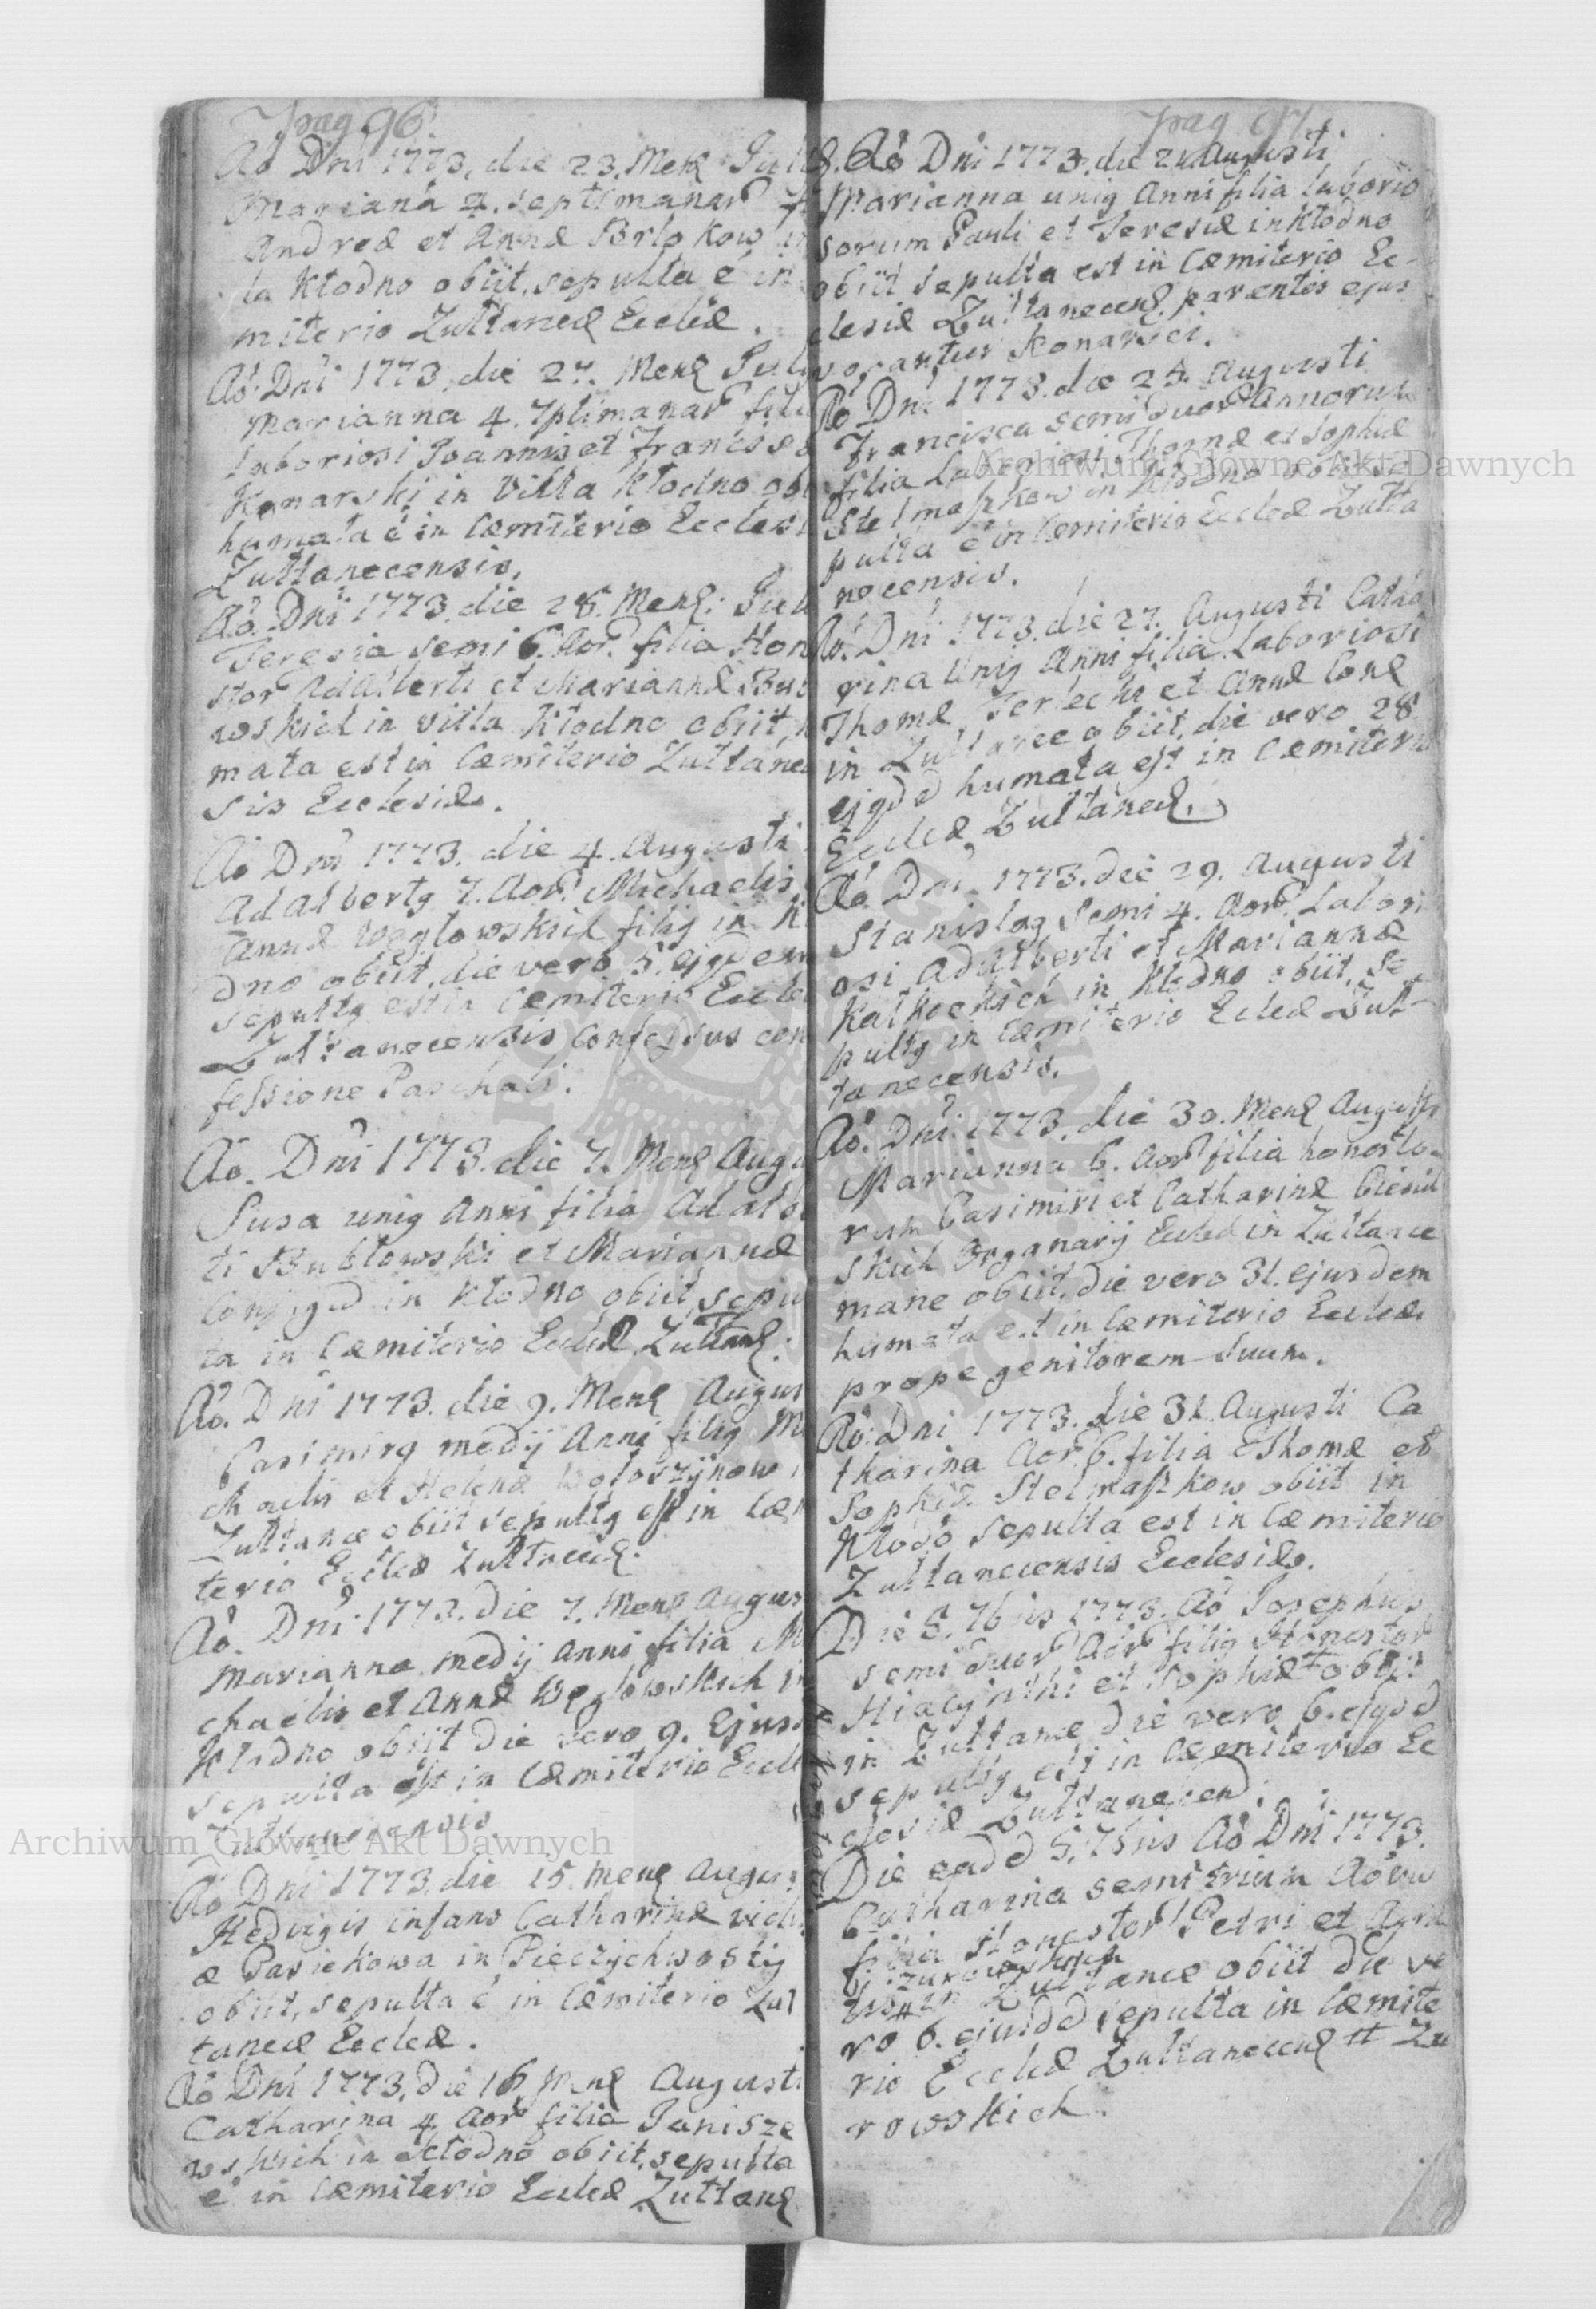 pag 96.
Aõ Dni 1773, die 23. Mens Julii
Mariana 4. septimanar
Andreæ et Annæ Brlokow in
la Kłodno obiit, sepulta é in
miterio Żułtaneæ Eccliæ.
Aõ. Dni 1773, die 27. Mens Julij
Marianna 4. 7ptimanar filia
laboriosi Joannis et Francisc
Konarski in Villa Kłodno obi
humata é in Cæmiterio Ecclesi
Żułtanecensis.
Aõ. Dni 1773. die 28. Mens: Juli
Teresia semi 6. Aor. filia Hon
stor Adalberti et Mariannæ Bub
wskich in villa Kłodno obiit h
mata est in Cæmiterio Żułtanec
sis Ecclesiæ.
Aõ Dni 1773. die 4. Augusti
Adalbertg 7. Aor. Michaelis
Annæ Węglowskich filig in Kł
dno obiit, die vero 5. ejgdem
sepultg est in Cemiterio Eccle
Żułtanecensis Confessus con
fessione Paschali.
Aõ. Dni 1773. die 7. Mens Augu
Susa unig Anni filia Adalb
ti Bubłowski et Mariannæ
Conjugd in Kłodno obiit, sepu
ta in Cæmiterio Eccliæ Żułtans:
Aõ. Dni 1773. die 9. Mens Augus
Casimirg medij Anni filig Mi
chaelis et Helenæ Wołoszijnow
Żułtance obiit sepultg est in Cæ
terio Eccleæ Żułtnec.
Aõ. Dni 1773. die 7. Mens Augus
Marianna medij Anni filia Mi
chaelis et Annæ Węglowskich in
Kłodno obiit Die vero 9. Ejus
sepulta est in Cæmiterio Eccl
Żułtanecensis
Aõ Dni 1773. die 15. Mens Augus
Hedvigis infans Catharinæ vidu
æ Pasiekowa in Pieczychwosty
obiit, sepulta é in Cæmiterio Żuł
taneæ Eccleæ.
Aõ Dni 1773, die 16 Mens Augusti
Catharina 4 Aor filia Janisze
wskich in Kłodno obiit, sepulta
é in Cæmiterio Eccleæ Żułtans
pag 97.
Aõ Dni 1773. die Augusti
Marianna unig Anni filia laborio
sorum Pauli et Teresiæ in Kłodno
obiit sepulta est in Cæmiterio Ec-
clesiæ Żułtanecens. parentes ejus
vocantur Konarsci.
Aõ Dni 1773. die 25. Augusti
Francisca semi duor Annorum
filia Laboriosi Thomæ et Sophiæ
Stelmaszkow in Kłodno se
pulta é in Cæmiterio Eccleæ Żułta
necensis.
Aõ. Dni 1773. die 27. Augusti Catha
rina Unig Anni filia Laboriosi
Thomæ Terlecki et Annæ Cons
in Żułtance obiit, die vero 28
ejgdd humata est in Cæmiterio
Eccleæ Żułtanecs.
Aõ Dni 1773. die 29. Augusti
Stanislag semi 4. Aor. Labori
osi Adalberti et Mariannæ
in Kłodno obiit, se
pultg in Cæmiterio Eccleæ Żuł-
tanecensis.
Aõ. Dni 1773. die 30. Mens Augusti
Marianna 6. Aor filia honesto-
rum Casimiri et Catharinæ
skich Organarij Eccleæ in Żułtance
mane obiit, die vero 31. ejusdem
humata est in Cæmiterio Eccleæ
prope genitorem suum.
Aõ: Dni 1773. die 31. Augusti Ca
tharina Aor. 6. filia Thomæ et
Sophiæ Stelmaszkow obiit in
Kłodõ sepulta est in Cæmiterio
Żułtanecensis Ecclesiæ.
Die 5. 7bris 1773. Aõ Josephus
semi duor Aor filig Honestor
Hiacijnthi et Sophiæ + obiit
in Żułtance die vero 6. ejgdd
sepultg est in Cæmiterio Ec
clesiæ Żułtanecen.
Die eadd 5. 7bris Aõ Dni 1773.
Catharina semi trium Aõrũ
filia Honestor Petri et Agne
Zurowskich
tis # in Żułtance obiit die ve
ro 6. ejusdd sepulta in Cæmite
rio Eccleæ Żułtanecens # Zu
rowskich.
Archiwum Główne Akt Dawnych
Archiwum Główne Akt Dawnych